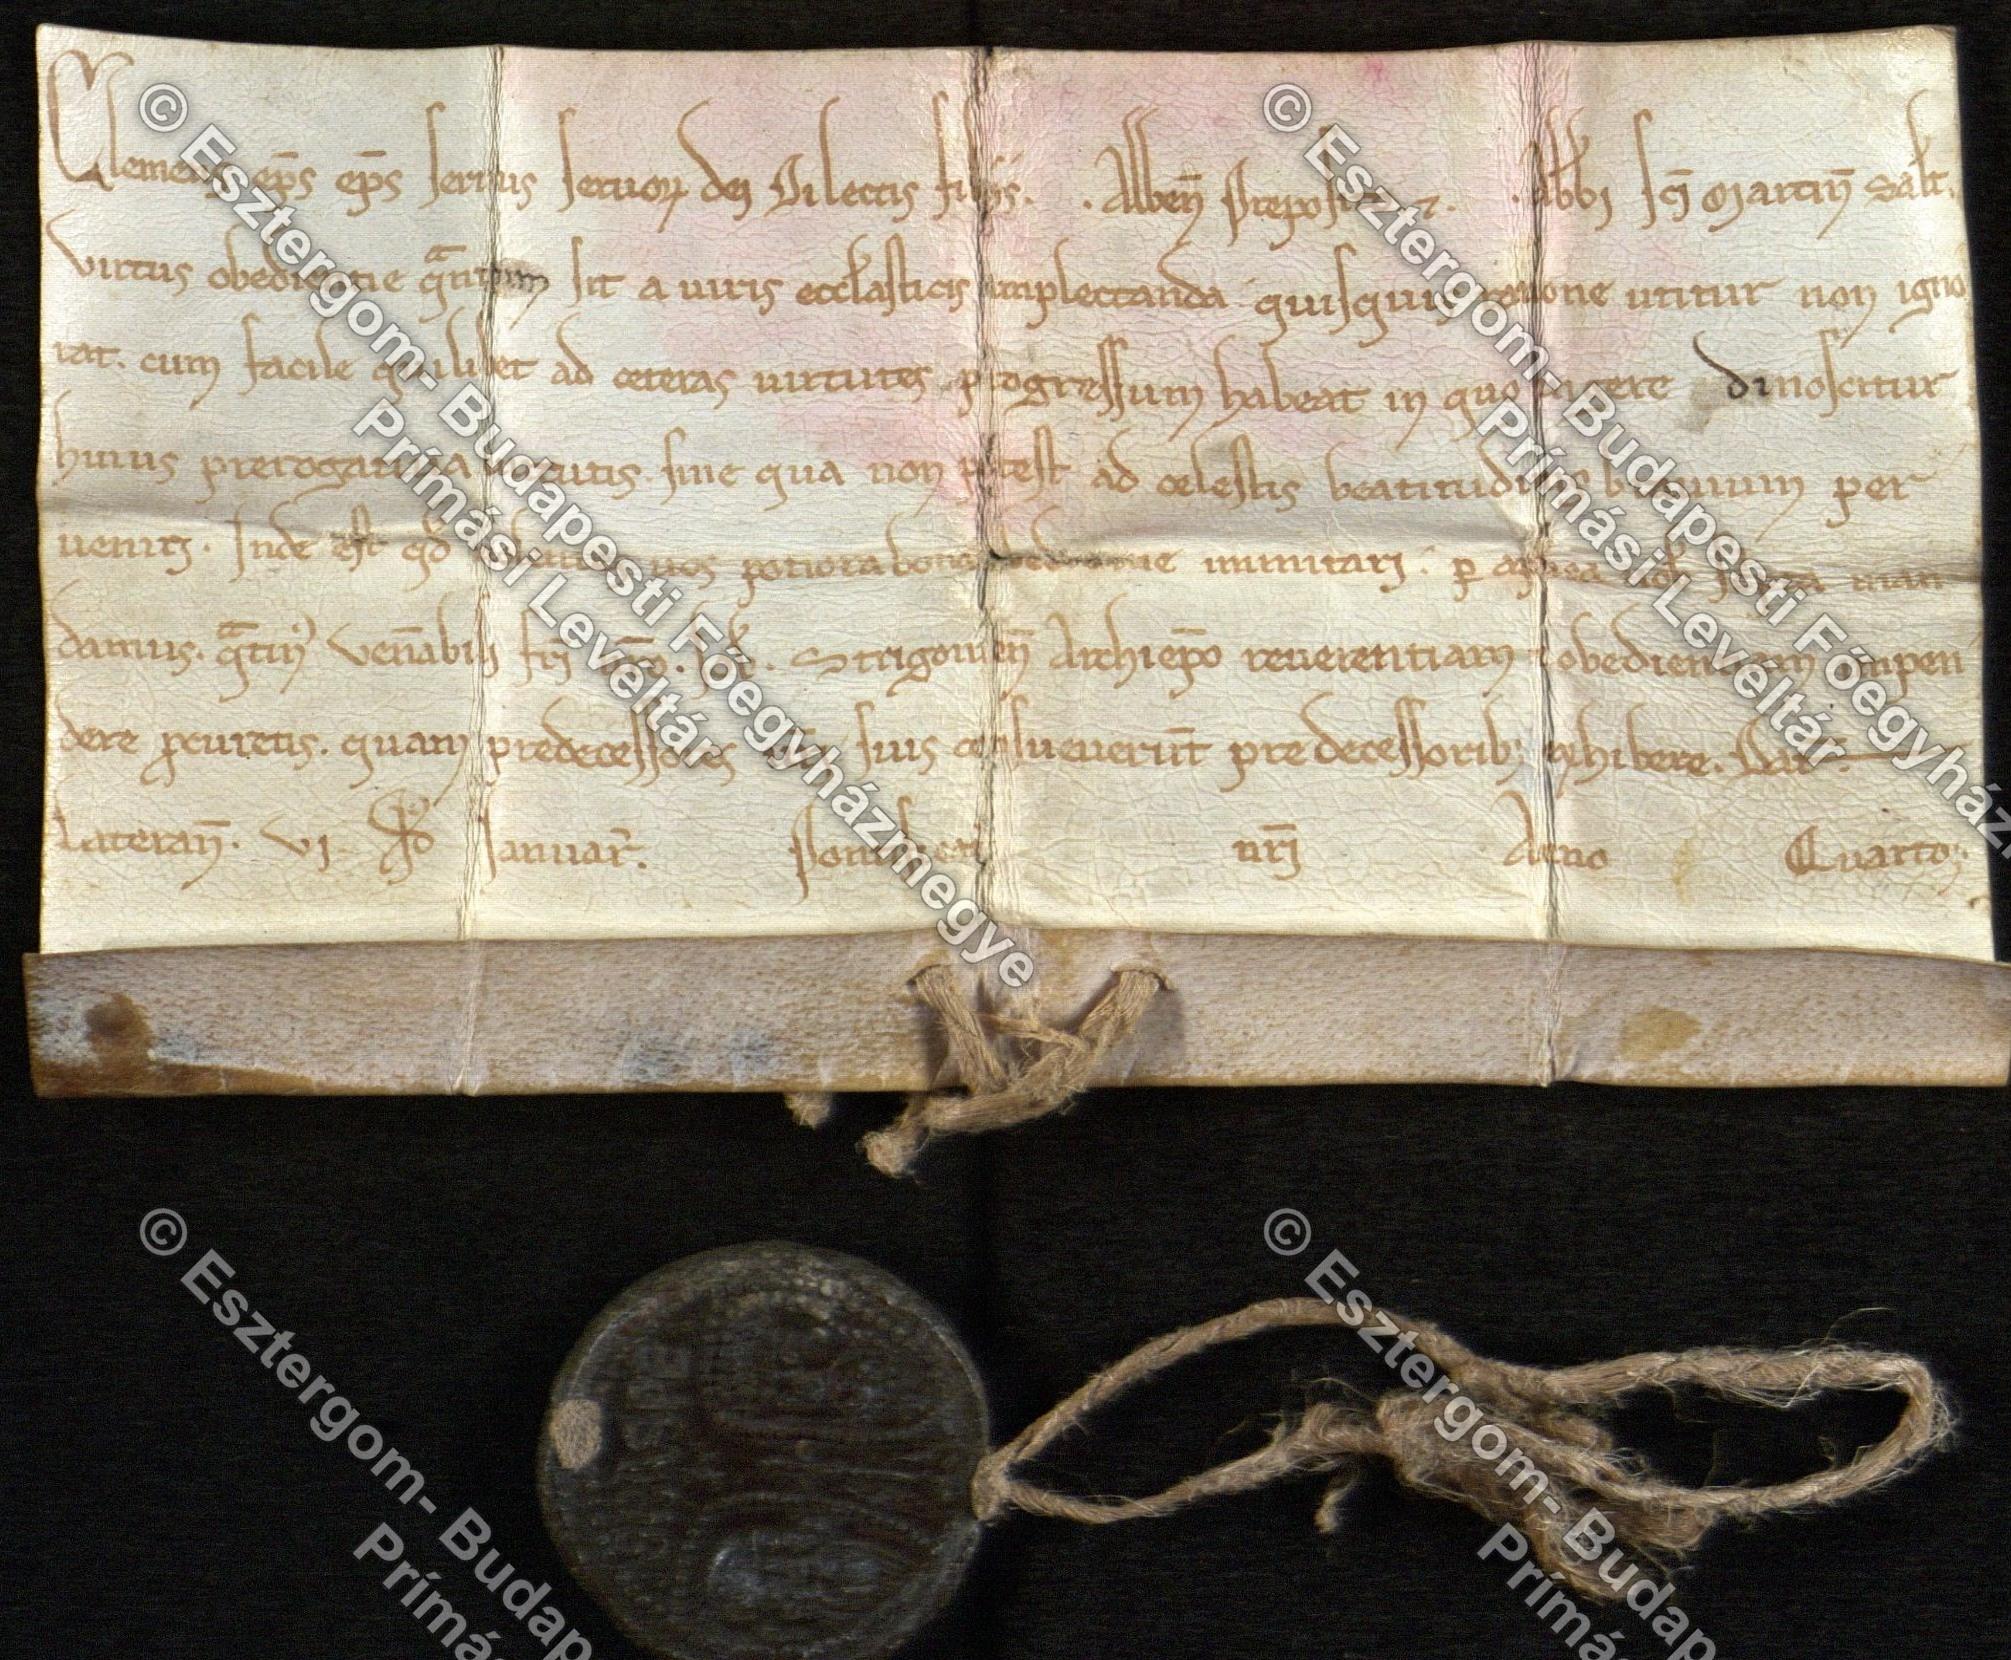 Clemens ep̅s ep̅s seruus seruoꝝ dei Dilectis filijs. . Alben̅ Preposito ⁊. . Abb̅i sc̅i Martin̅ Salt̅.
Virtus obedientie qͣntum sit a uiris eccl̅asticis amplectanda quisquis ratione utitur non igno
rat. cum facile quilibet ad ceteras uirtutes progressum habeat in quo uigere dinoscitur
huius prerogatiua uirtutis. sine qua non potest ad celestis beatitudinis brauium per
ueniri. Inde est qd̅ uos potiora bona imitari. ꝑ ap̅lica uob̅ scripta man
damus. qͣtin᾽ Ven̅abili fr̅i nr̅o. Strigonien̅ Archiep̅o reuerentiam ⁊ obedientiam impen
dere ꝓcuretis. quam predecessores ur̅i suis consueuerūt predecessorib; exhibere. Dat̅.
Lateran̅. VI. kl̅ Januar̅. Pontificat᾽ nr̅i Anno Quarto.
© Esztergom- Budapesti Főegyházmegye
Prímási Levéltár
© Esztergom- Budapesti Főegyház
Prímási Levéltár
© Esztergom- Budap
Prímás
© Esztergom- Budap
Prímás